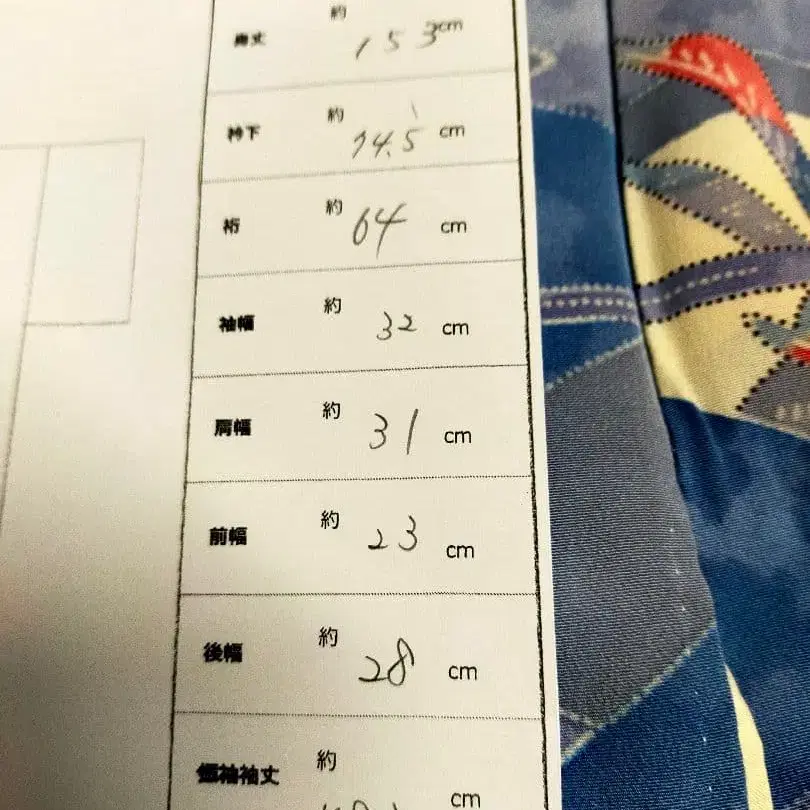 約
身丈 153cm
衿下 約 74.5 cm
裄 約 64 cm
袖幅 約 32 cm
肩幅 約 31 cm
前幅 約 23 cm
後幅 約 28 cm
袖丈 約 cm